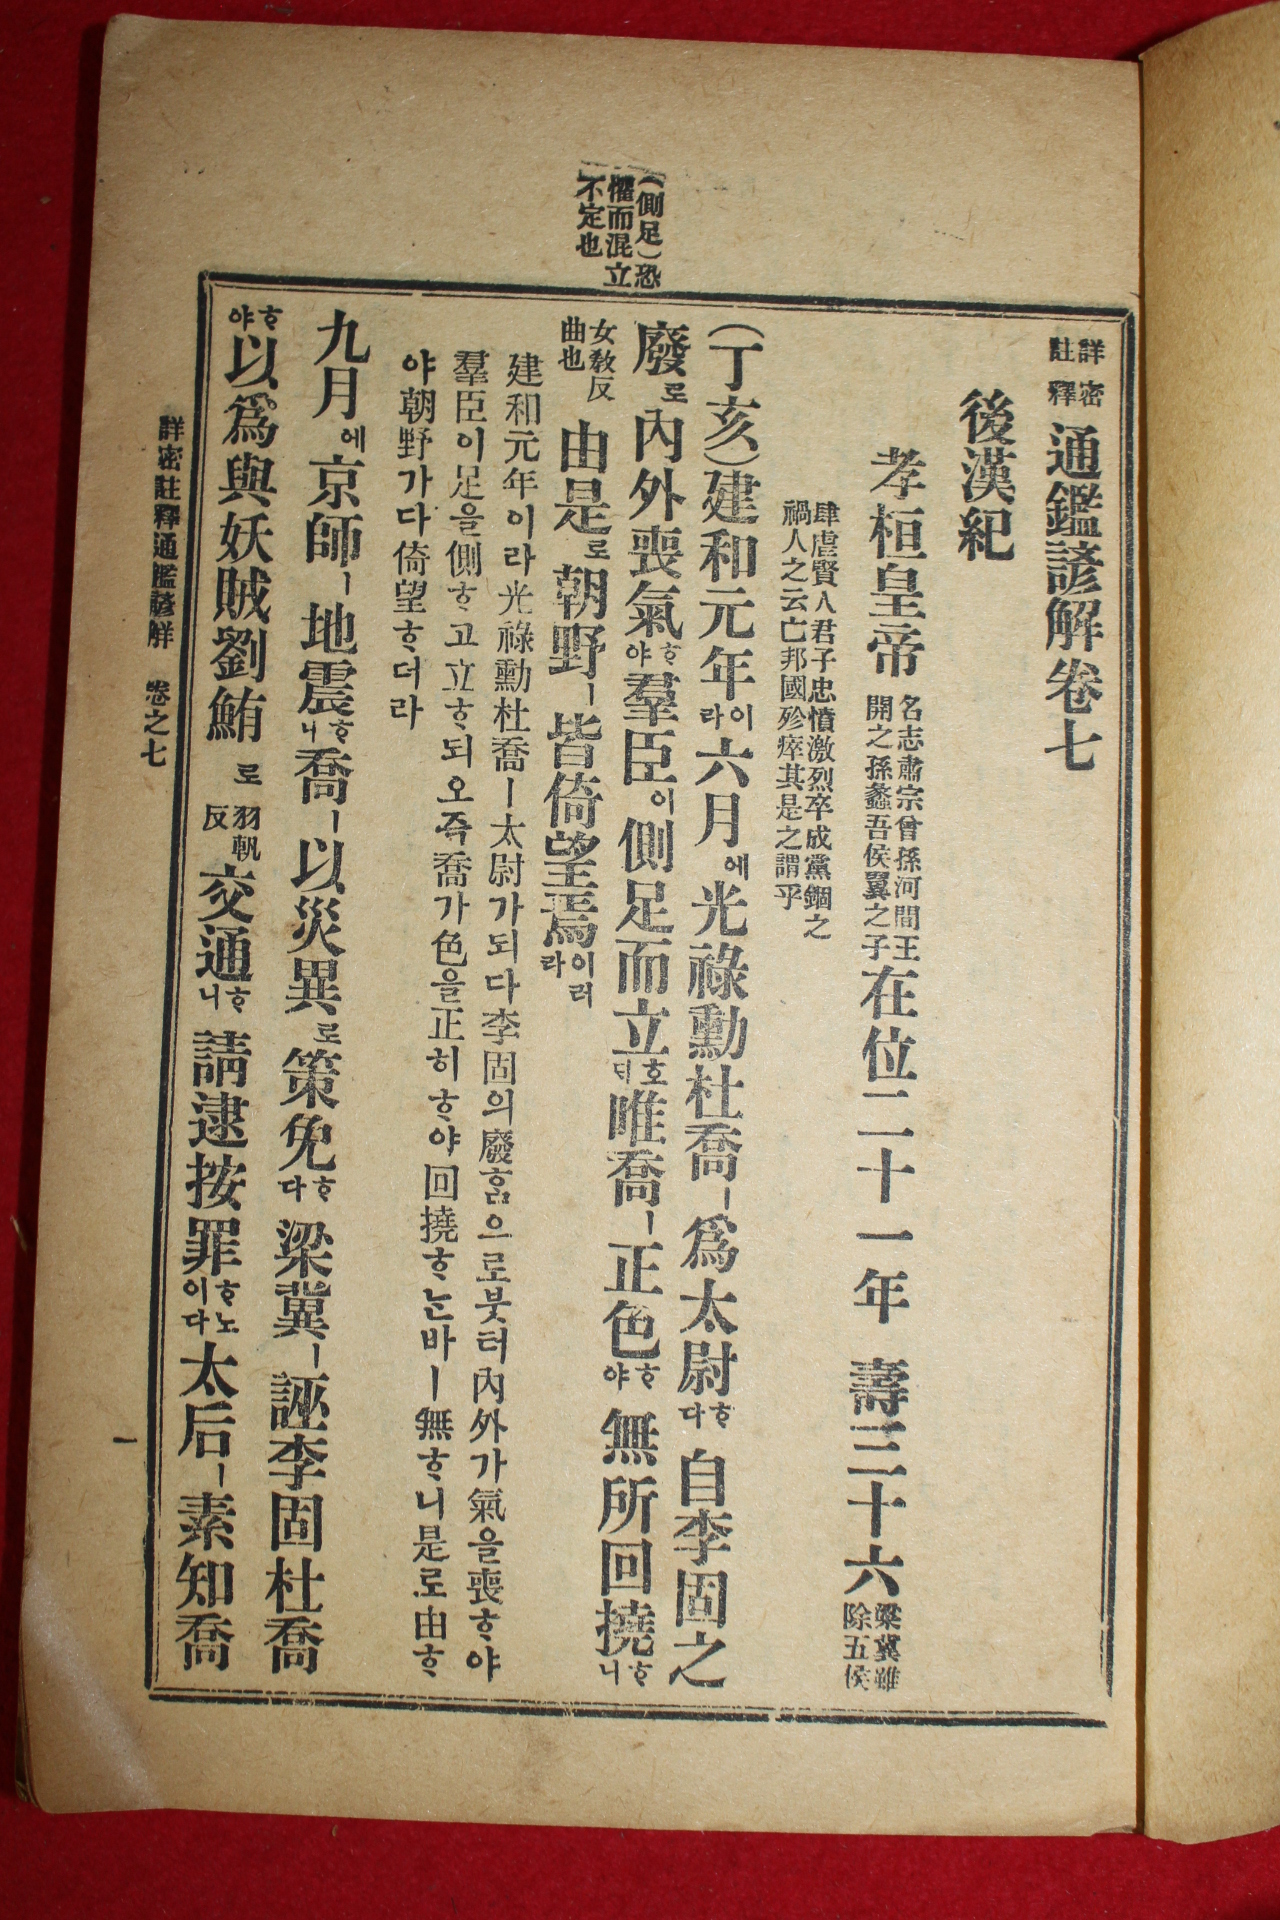 (側足)恐
懼而混立
不定也
詳密
註釋 通鑑諺解卷七
後漢紀
孝桓皇帝 名志肅宗曾孫河間王
開之孫蠡吾侯翼之子 在位二十一年 壽三十六 梁冀雖
除五侯
肆虐賢人君子忠憤激烈卒成黨錮之
禍人之云亡邦國殄瘁其是之謂乎
(丁亥)建和元年이라六月에光祿勳杜喬ㅣ爲太尉ᄒᆞ다自李固之
廢로內外喪氣ᄒᆞ야羣臣이側足而立호ᄃᆡ唯喬ㅣ正色ᄒᆞ야無所回撓ᄒᆞ니
女敎反
曲也 由是로朝野ㅣ皆倚望焉이러라
建和元年이라光祿勳杜喬ㅣ太尉가되다李固의廢홈으로붓터內外가氣을喪ᄒᆞ야
羣臣이足을側ᄒᆞ고立ᄒᆞ되오즉喬가色을正히ᄒᆞ야回撓ᄒᆞᄂᆞᆫ바ㅣ無ᄒᆞ니是로由ᄒᆞ
야朝野가다倚望ᄒᆞ더라
九月에京師ㅣ地震ᄒᆞ니喬ㅣ以災異로策免ᄒᆞ다梁冀ㅣ誣李固杜喬
ᄒᆞ야以爲與妖賊劉鮪로 羽軌
反 交通ᄒᆞ니請逮按罪ᄒᆞ노이다太后ㅣ素知喬
詳密註釋通鑑諺解 卷之七
一